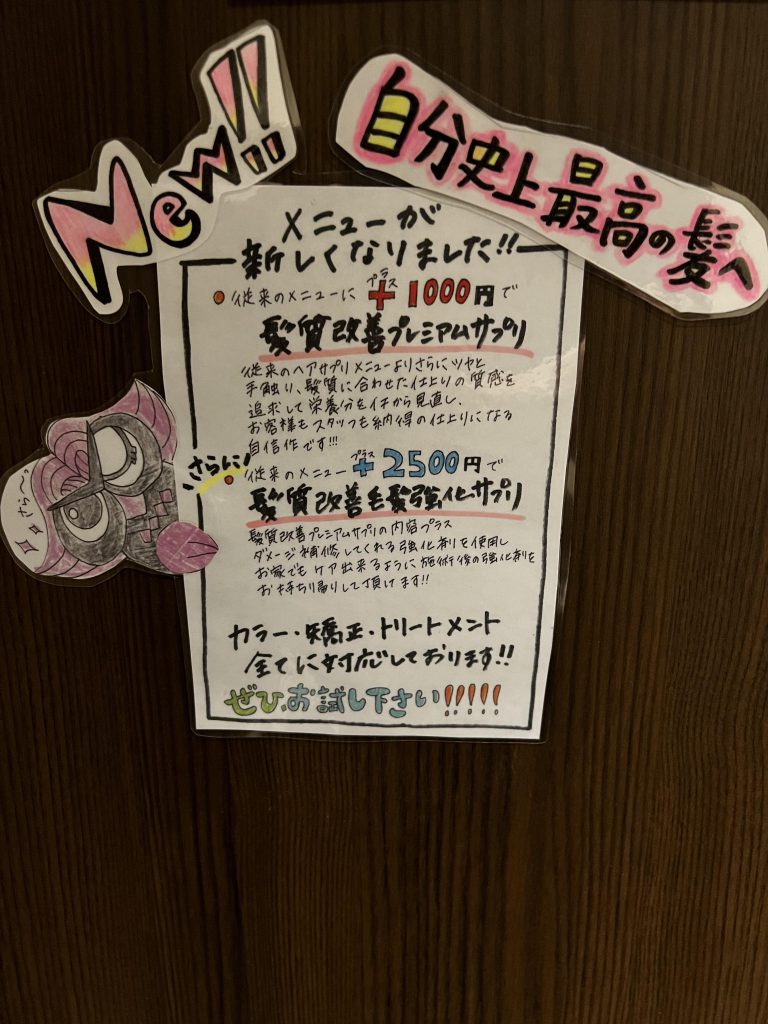 New!!
自分史上最高の髪へ
メニューが
新しくなりました!!
従来のメニューに プラス + 1000円で
髪質改善プレミアムサプリ
従来のヘアサプリメニューよりさらにツヤと
手触り、髪質に合わせた仕上りの質感を
追求して栄養分をイチから見直し、
お客様もスタッフも納得の仕上りになる
自信作です!!!
さらに!
従来のメニュー プラス + 2500円で
髪質改善毛髪強化サプリ
髪質改善プレミアムサプリの内容プラス
ダメージ補修してくれる強化剤を使用し
お家でもケア出来るように施術後の強化剤を
お持ち帰りして頂けます!!
さら〜っ
カラー・矯正・トリートメント
全てに対応しております!!
ぜひ、お試し下さい!!!!!